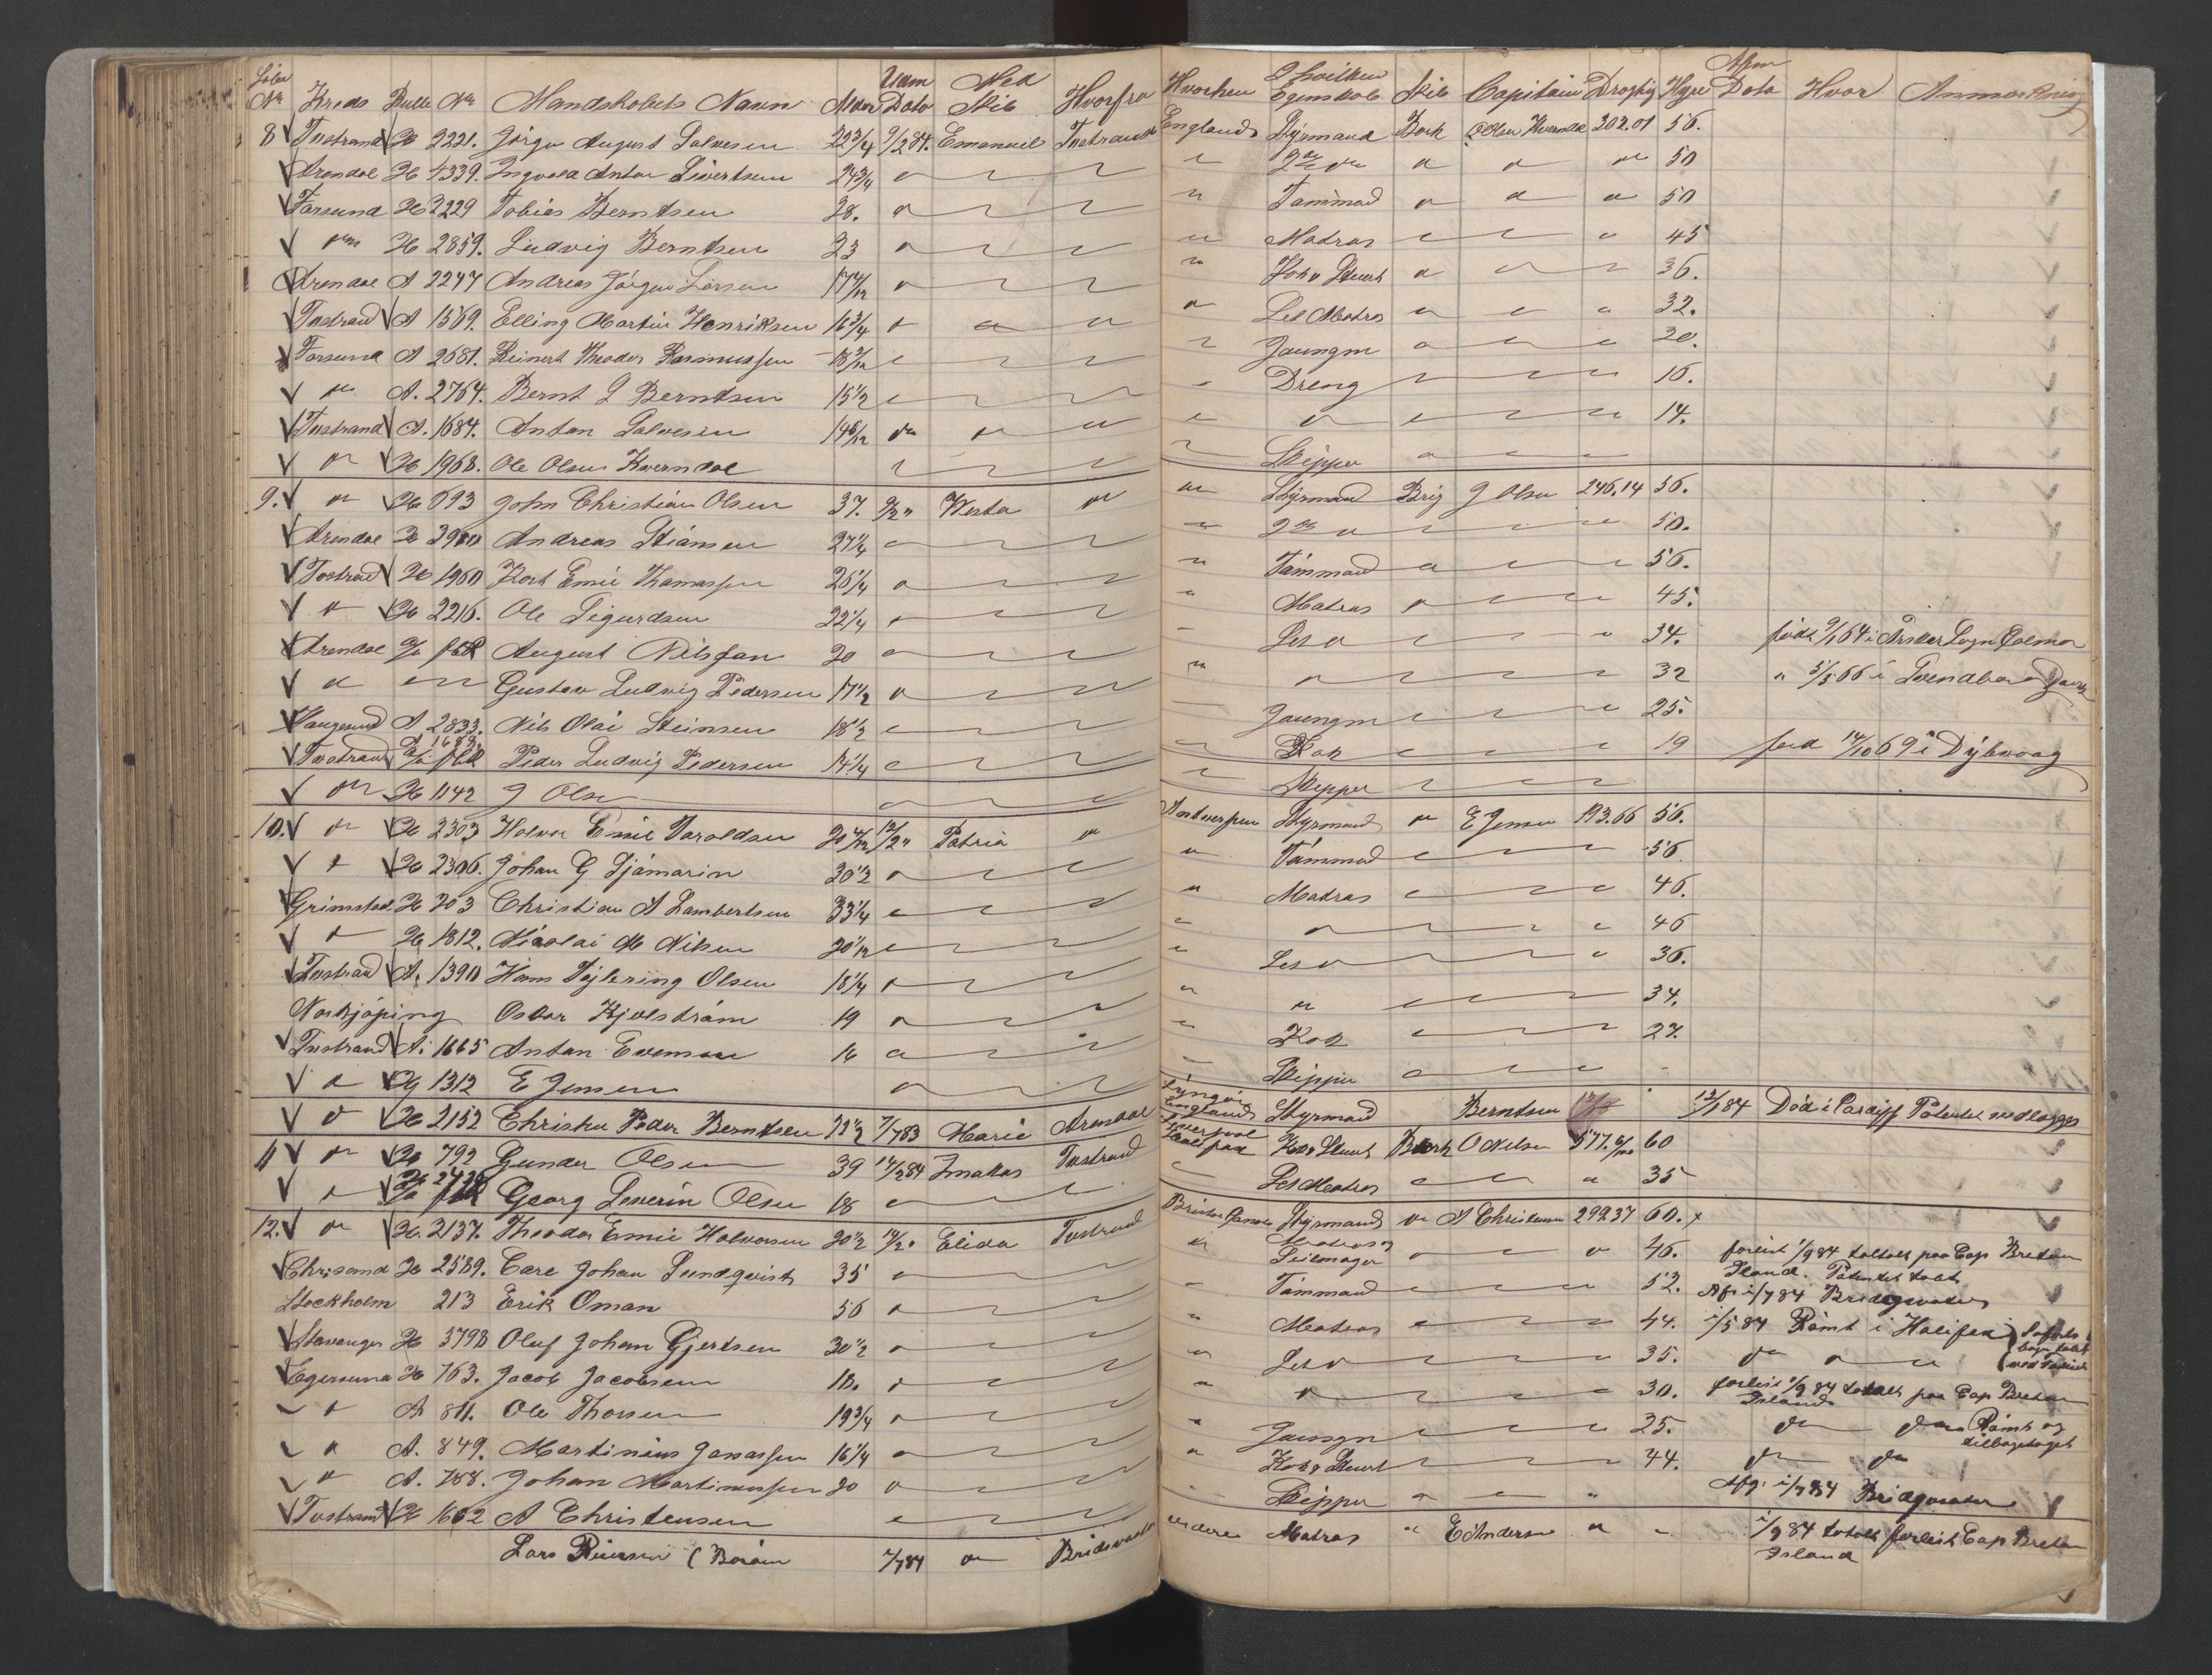 Løbe No Kreds Rulle No Mandskabets Navn Alder Uam Dato Med Skib Hvorfra Hvorhen I hvilken Egenskab Skib Capitain Drægtig Hyre Afm Dato Hvor Anmærkning
8 Tvestrand H 2221. Jörgen August Salvesen 22 3/4 9/2 84. Emanuel Tvestrand England Styrmand Bark O Olsen Kverndal 302.01 56.
Arendal H 4339. Ingvald Anton Sivertsen 24 3/4 " 2den do " " " 50
Farsund H 2229 Tobias Berntsen 28. " Tømmmd " " " 50
do H 2859. Ludvig Berntsen 23 " Matros " 45
Arendal A 2247 Andreas Jörgen Larsen 17 4/12 " Kok & Stuert " 36.
Tvestrand A 1569. Elling Martin Henriksen 16 3/4 " Let Matros " 32.
Farsund A 2681. Reinert Theodor Rasmussen 18 " Jaungm " 20.
do A. 2764. Bernt J Berntsen 15 1/2 " Dreng " 16.
Tvestrand A. 1684. Anton Salvesen 14 " do " " 14.
do H 1968. Ole Olsen Kverndal " Skipper "
9. do H 693 John Christian Olsen 37. 9/2 " Vesta do " Styrmand Brig J Olsen 246,14 56.
Arendal H 3980 Andreas Stiansen 27 1/4 " 2den do " 50.
Tvestrand H 1960 Kort Emil Thomassen 26 1/4 " Tømmand " 56.
do H 2216. Ole Sigurdsen 22 1/4 " Matros " 45.
Arendal August Nilssan 20 " Let do " 34. född 9/1 64 i Sogn
do Gustav Ludvig Pedersen 17 1/2 " do " 32 " 5/5 66 i Svendborg
Haugesund A 2833. Nils Olai Steinsen 18 1/2 " Jaungm " 25.
Tvestrand A 1688. Peder Ludvig Pedersen 14 1/4 " Kok " 19 född 14/10 69 i Dybvaag
do H 1142 J Olsen " Skipper "
10. do H 2303 Halvor Emil Taraldsen 20 12/2 " Patria do Antwerpen Styrmand do E Jensen 193.66 56.
do H 2306. Johan G Sjömarin 20 1/2 " Tømmmd " 56
Grimstad H 703 Christian A Lambertsen 33 1/4 " Matros " 46.
do H 1812. Nicolai M Nilsen 20 1/12 " do " 46
Tvestrand A. 1390 Hans Olsen 18 1/4 " Let do " 36.
Norkjöping Oskar Kjelström 19 " do " 34.
Tvestrand A. 1665 Anton Evensen 16 " Kok " 27.
do H 1312 E Jensen " Skipper "
do H 2152 Christen Peder Berntsen 22 1/2 7/7 83 Marie Arendal England Styrmand Berntsen 12/1 84 Död i Cardiff Patentet vedlagges
11 do H 792 Gunder Olsen 39 14/2 84 Imatas Tvestrand Liverpool Kok & Stuert Bark O Nilsen 577. 60
do H Georg Severin Olsen 18 " Let Matros " 35
12. do H. 2137. Theodor Emil Halvorsen 20 1/2 14/2 " Elida Tvestrand Bristol Styrmand do A Christensen 299.37 60.
Chrisand H 2589. Carl Johan Lundqvist 35 " Matros og Seilmager " 46. forlist 1/9 84 totalt paa Cap Breton Island. Patentet tabt
Stockholm 213 Erik Oman 56 " Tømmand " 52. Afm 1/7 84 Bridgwater
Stavanger H 3798 Oluf Johan Gjertsen 20 1/2 " Matros " 44. 1/5 84 Römt i Halifax
Egersund H 763. Jacob Jacobsen 18. " Let do " 35. do " "
do A 811. Ole Thorsen 19 3/4 " do " 30. forlist 1/9 84 totalt paa Cap Breton Island
do A. 849. Martinius Jonassen 16 1/4 " Jaungm " 25. do do Römt og tilbagetaget
do A. 788. Johan Martinussen 20 " Kok & Stuert " 44. do do
Tvestrand H 1662 A Christensen " Skipper " Afg. 1/7 84 Bridgwater
Lars Reiersen (Baröen 1/7 84 do Bridgwater videre Matros " E Andersen " " 1/9 84 totalt forlist Cap Breton Island